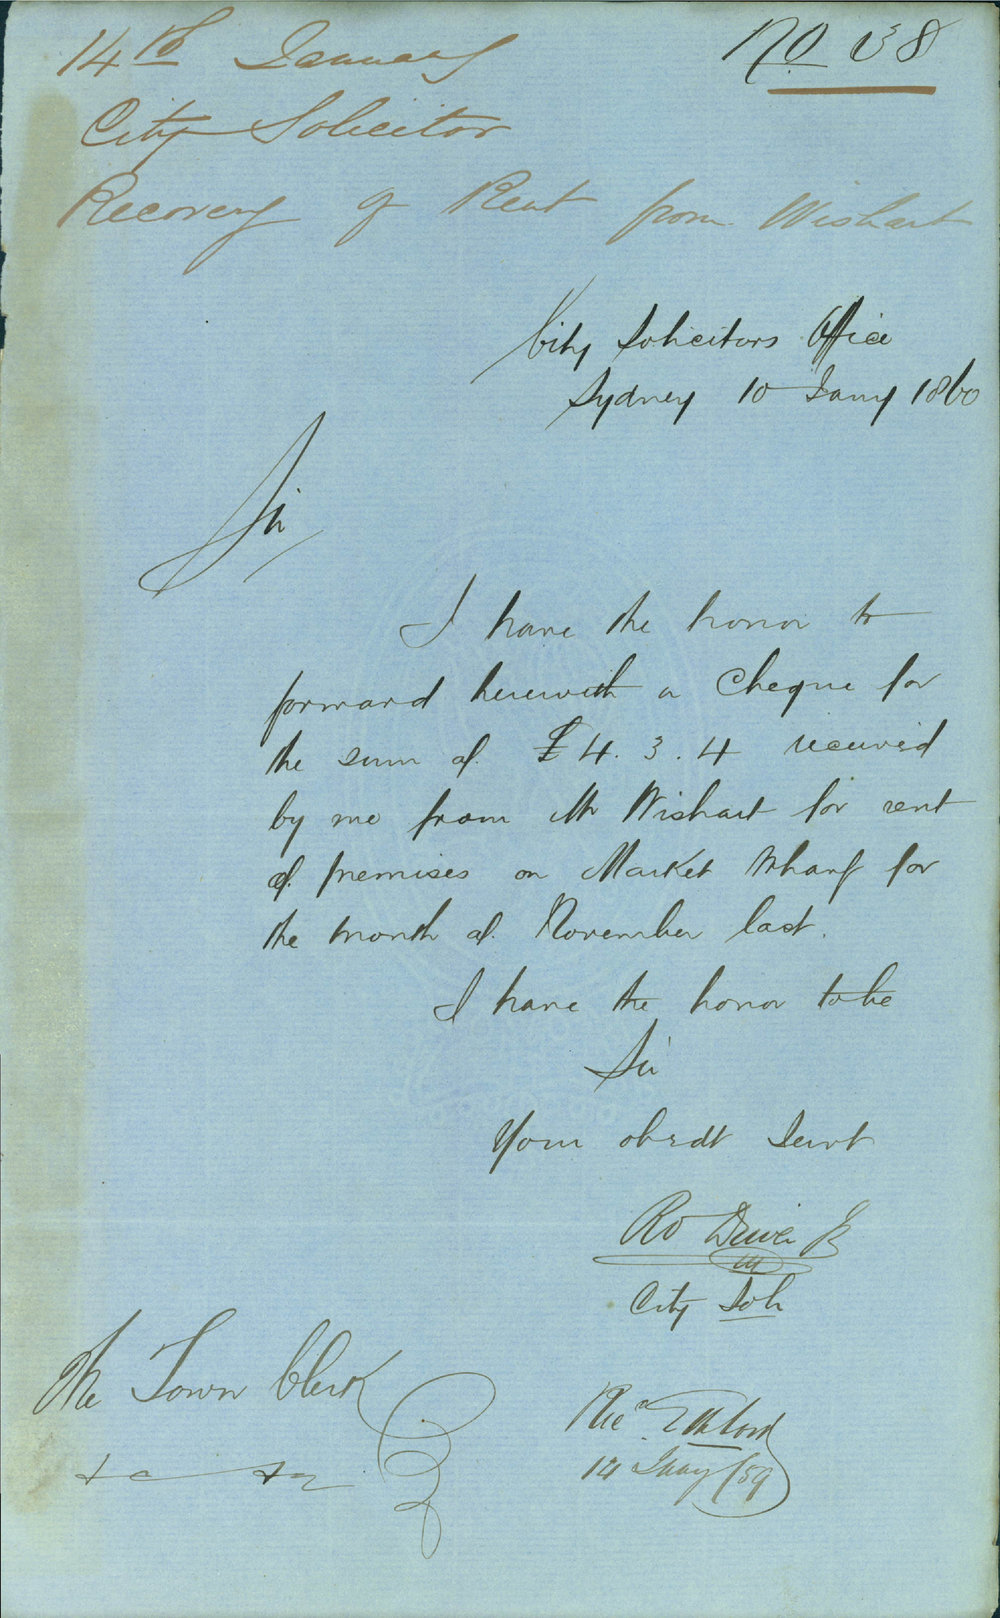 14th January
No 38
City Solicitor
Recovery of Rent from Wishart
City Solicitors Office
Sydney 10 Jany 1860
Sir
I have the honor to
forward herewith a Cheque for
the sum of £4.3.4 received
by me from Mr Wishart for rent
of premises on Market Wharf for
the month of November last.
I have the honor to be
Sir
Your obedt Servt
Ro Driver Jr
City Solr
The Town Clerk
&c &c
Recd
14 Jany /59